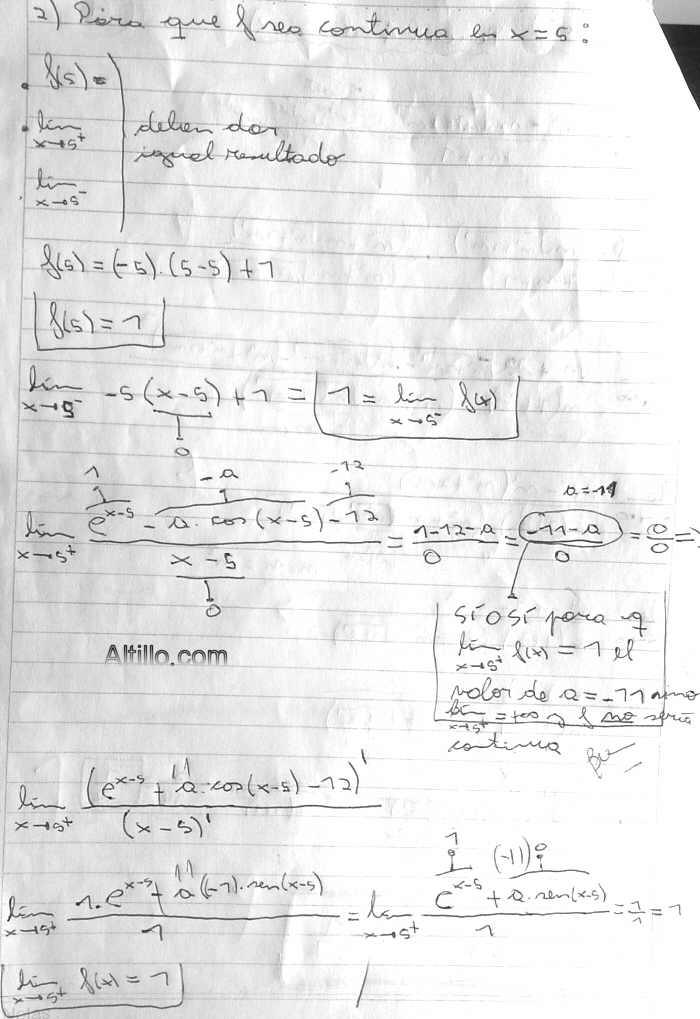 2) Para que f sea continua en x=5:
f(5)=
lim x→5⁺ deben dar
igual resultado
lim x→5⁻
f(5) = (-5).(5-5)+1
f(5) = 1
lim x→5⁻ -5(x-5)+1 = 1 = lim x→5⁻ f(x)
0
1 -a -12 a=-11
lim x→5⁺ (e^(x-5) - a.cos(x-5) - 12)/(x-5) = (1-12-a)/0 = (-11-a)/0 = 0/0 =>
0
SÍ O SÍ para q
lim x→5⁺ f(x) = 1 el
valor de a=-11 sino
lim x→5⁺ = +∞ y f no sería
continua
Altillo.com
lim x→5⁺ (e^(x-5) + 11 a.cos(x-5) - 12)'/(x-5)'
1 (-11) 0
lim x→5⁺ (1.e^(x-5) + 11 a(-1).sen(x-5))/1 = lim x→5⁺ (e^(x-5) + a.sen(x-5))/1 = 1/1 = 1
lim x→5⁺ f(x) = 1